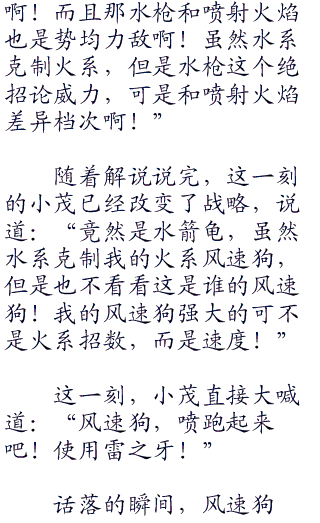 啊！而且那水枪和喷射火焰
也是势均力敌啊！虽然水系
克制火系，但是水枪这个绝
招论威力，可是和喷射火焰
差异档次啊！”
随着解说说完，这一刻
的小茂已经改变了战略，说
道：“竟然是水箭龟，虽然
水系克制我的火系风速狗，
但是也不看看这是谁的风速
狗！我的风速狗强大的可不
是火系招数，而是速度！”
这一刻，小茂直接大喊
道：“风速狗，喷跑起来
吧！使用雷之牙！”
话落的瞬间，风速狗